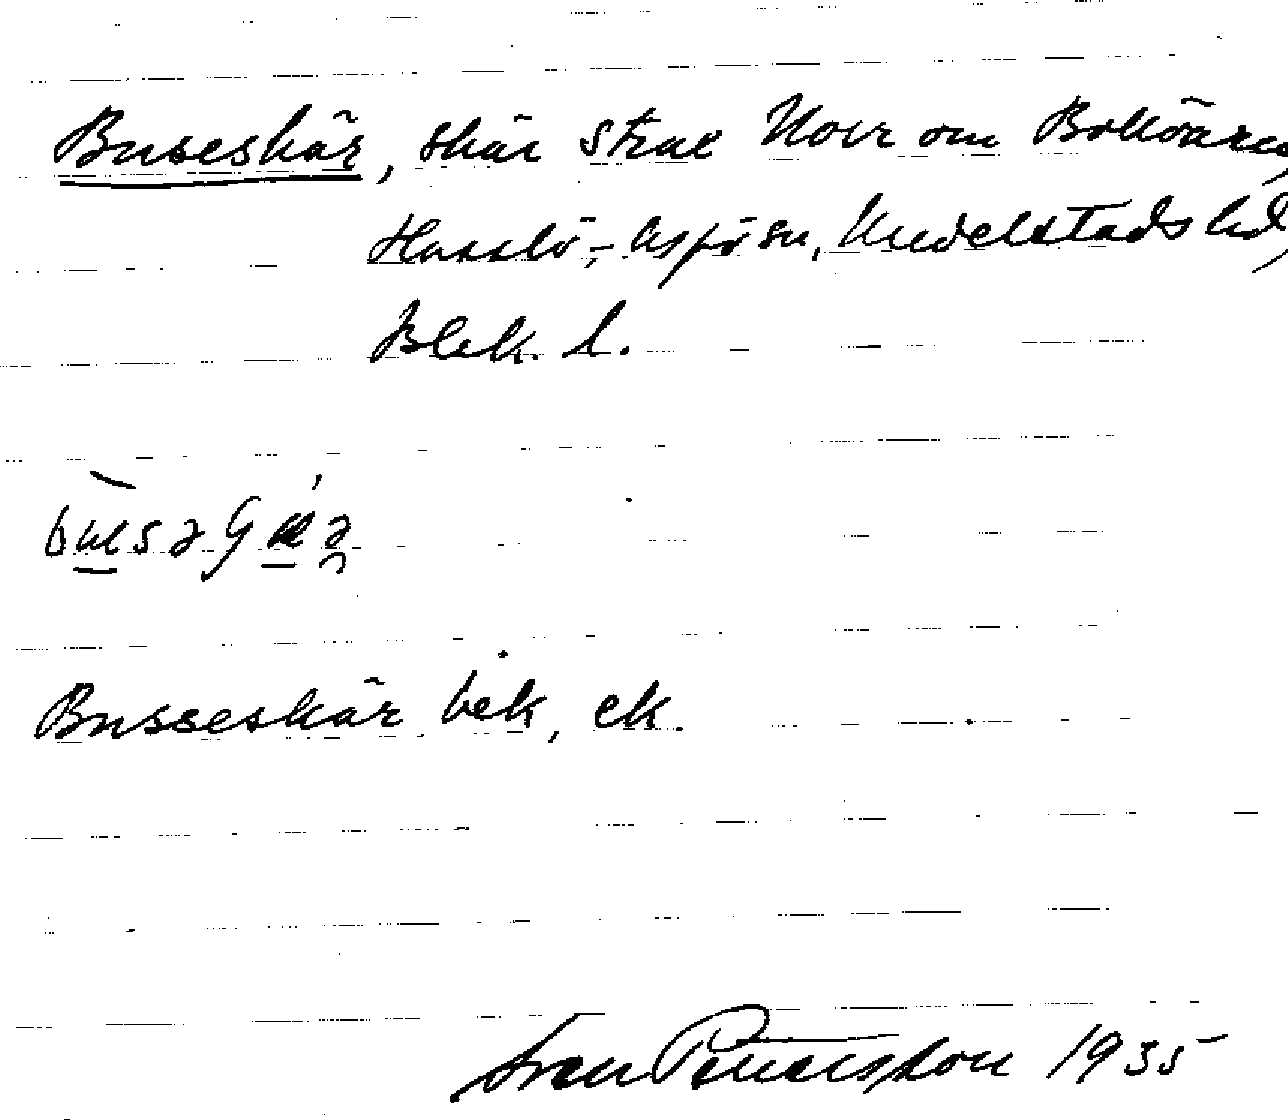 Buseskär, skär strax Norr om Bollöarna,
Hasslö-, Aspö sn, Medelstads hd,
Blek. l.
Busseskär bek, ek.
Sven Pettersson 1935